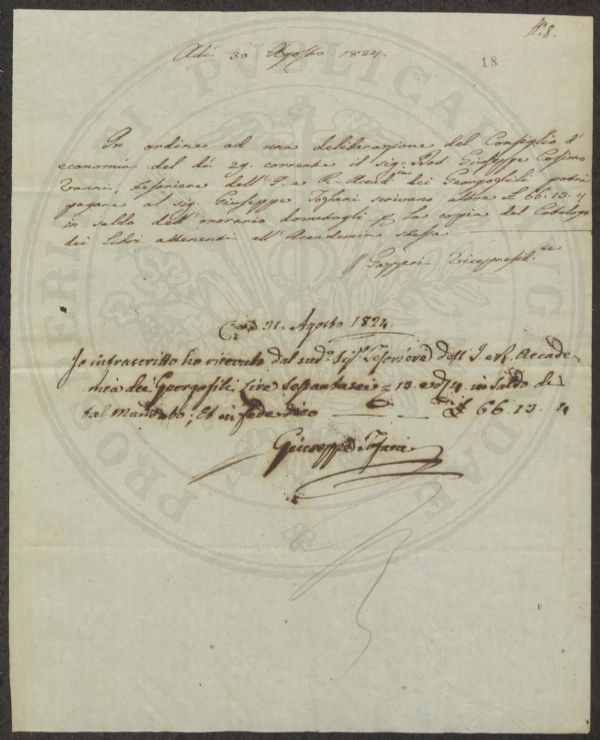 N.° 8.
18
Adì 30 Agosto 1824.
In ordine ad una deliberazione del Consiglio d'
economia del dì 29. corrente il sig. Giuseppe Cosimo
Vanni, Tesoriere dell' I. e R. Accad. dei Georgofili potrà
pagare al sig. Giuseppe Tofani scrivano altre £ 66. 13. 4
in saldo dell' onorario la copia del Catalogo
dei Libri attenenti all' Accademia stessa
Gazzeri Vicepresid.te
31. Agosto 1824.
Io infrascritto ho ricevuto dal sud.° Sig.r Tesoriere dell' I. e R. Accade-
mia dei Georgofili Lire sessantasei = 13 e d/4 in saldo di
tal Mandato; Et in fede dico £ 66. 13. 4
Giuseppe Tofani
PRUDENTER I PVBLICA